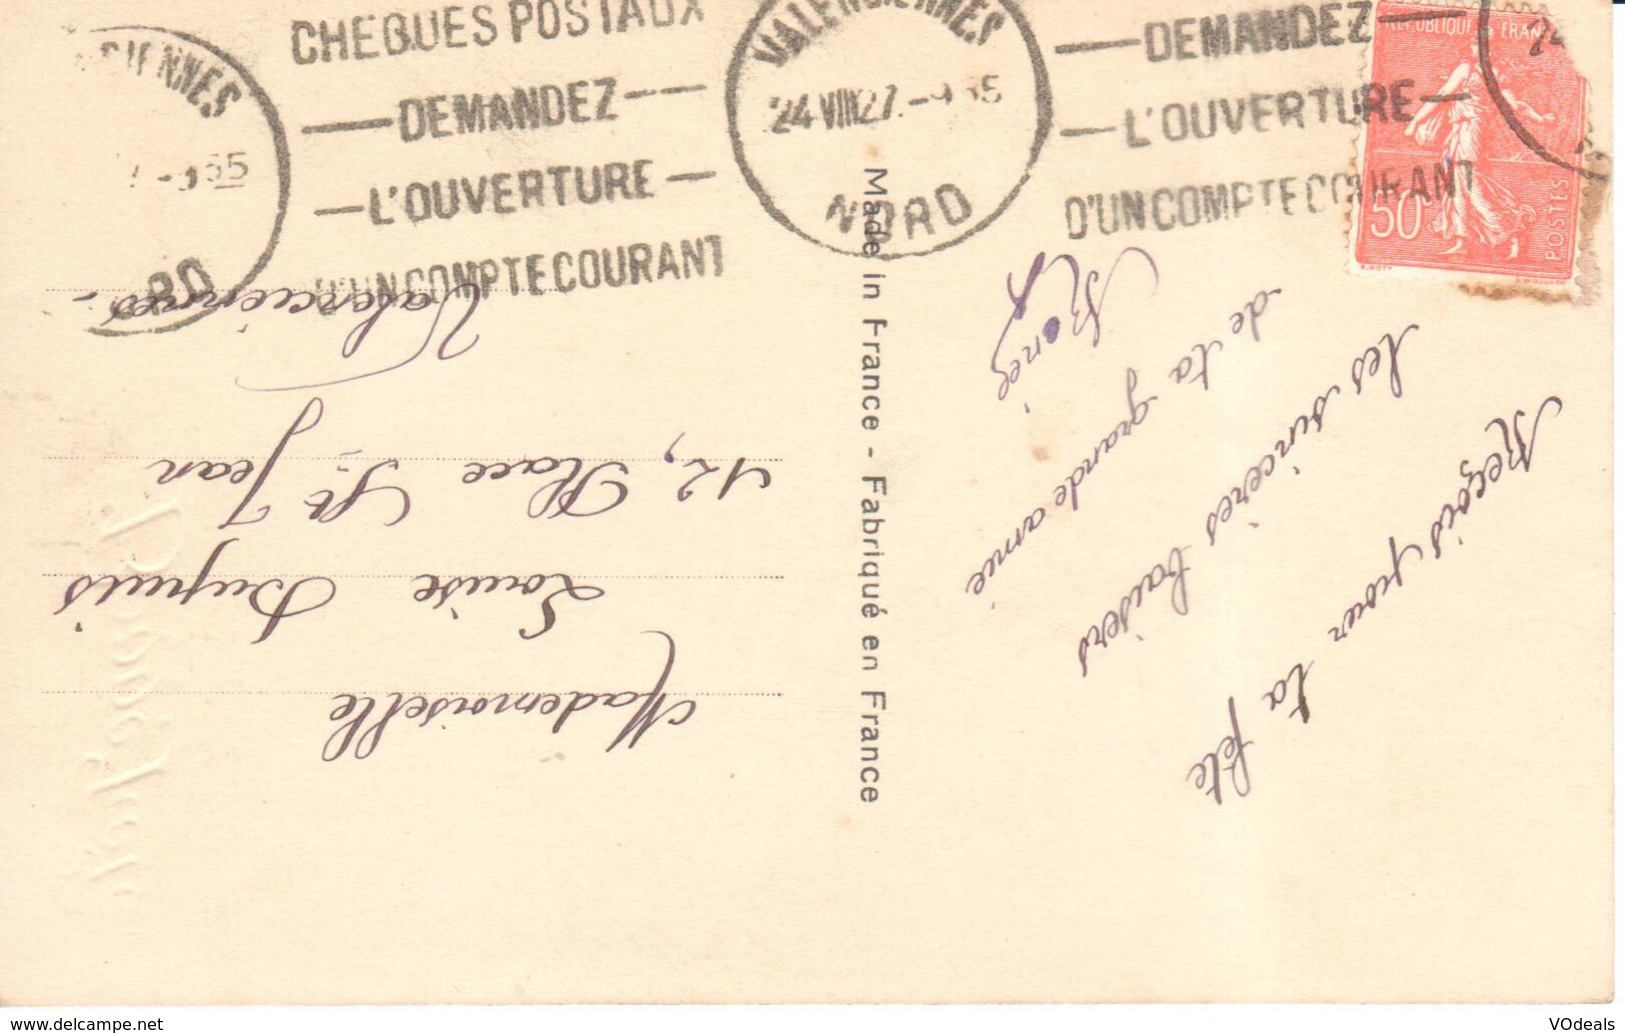 CHEQUES POSTAUX
DEMANDEZ
L'OUVERTURE
D'UN COMPTE COURANT
VALENCIENNES
24 VIII 27. -9 55
NORD
DEMANDEZ
L'OUVERTURE
D'UN COMPTE COURANT
REPUBLIQUE FRANC
50c
POSTES
Made in France - Fabriqué en France
Reçois pour ta fête
les sincères baisers
de ta grande amie
Renée
Mademoiselle
Louise Dupuis
12, Place St Jean
Valenciennes -
VOdeals
www.delcampe.net